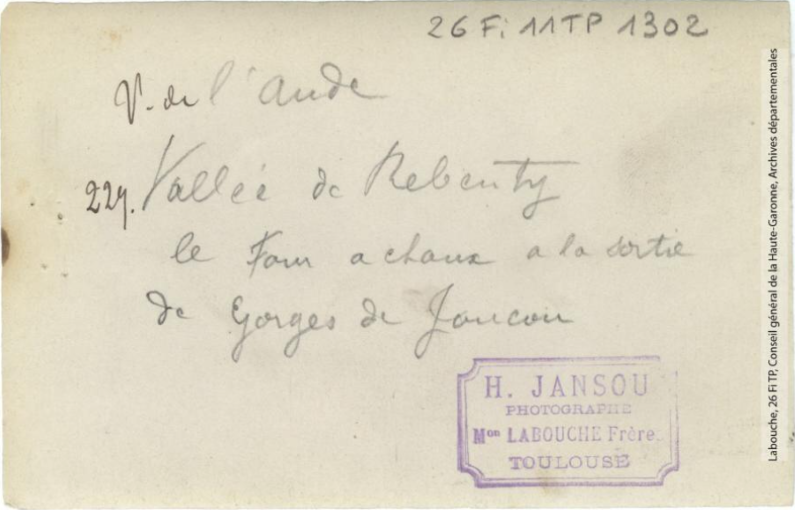 26 Fi 11TP 1302
V. de l'Aude
229. Vallée de Rebenty
le Four a chaux a la sortie
de Gorges de Joucou
H. JANSOU
PHOTOGRAPHE
Mon LABOUCHE Frère
TOULOUSE
Labouche, 26 Fi TP, Conseil général de la Haute-Garonne, Archives départementales